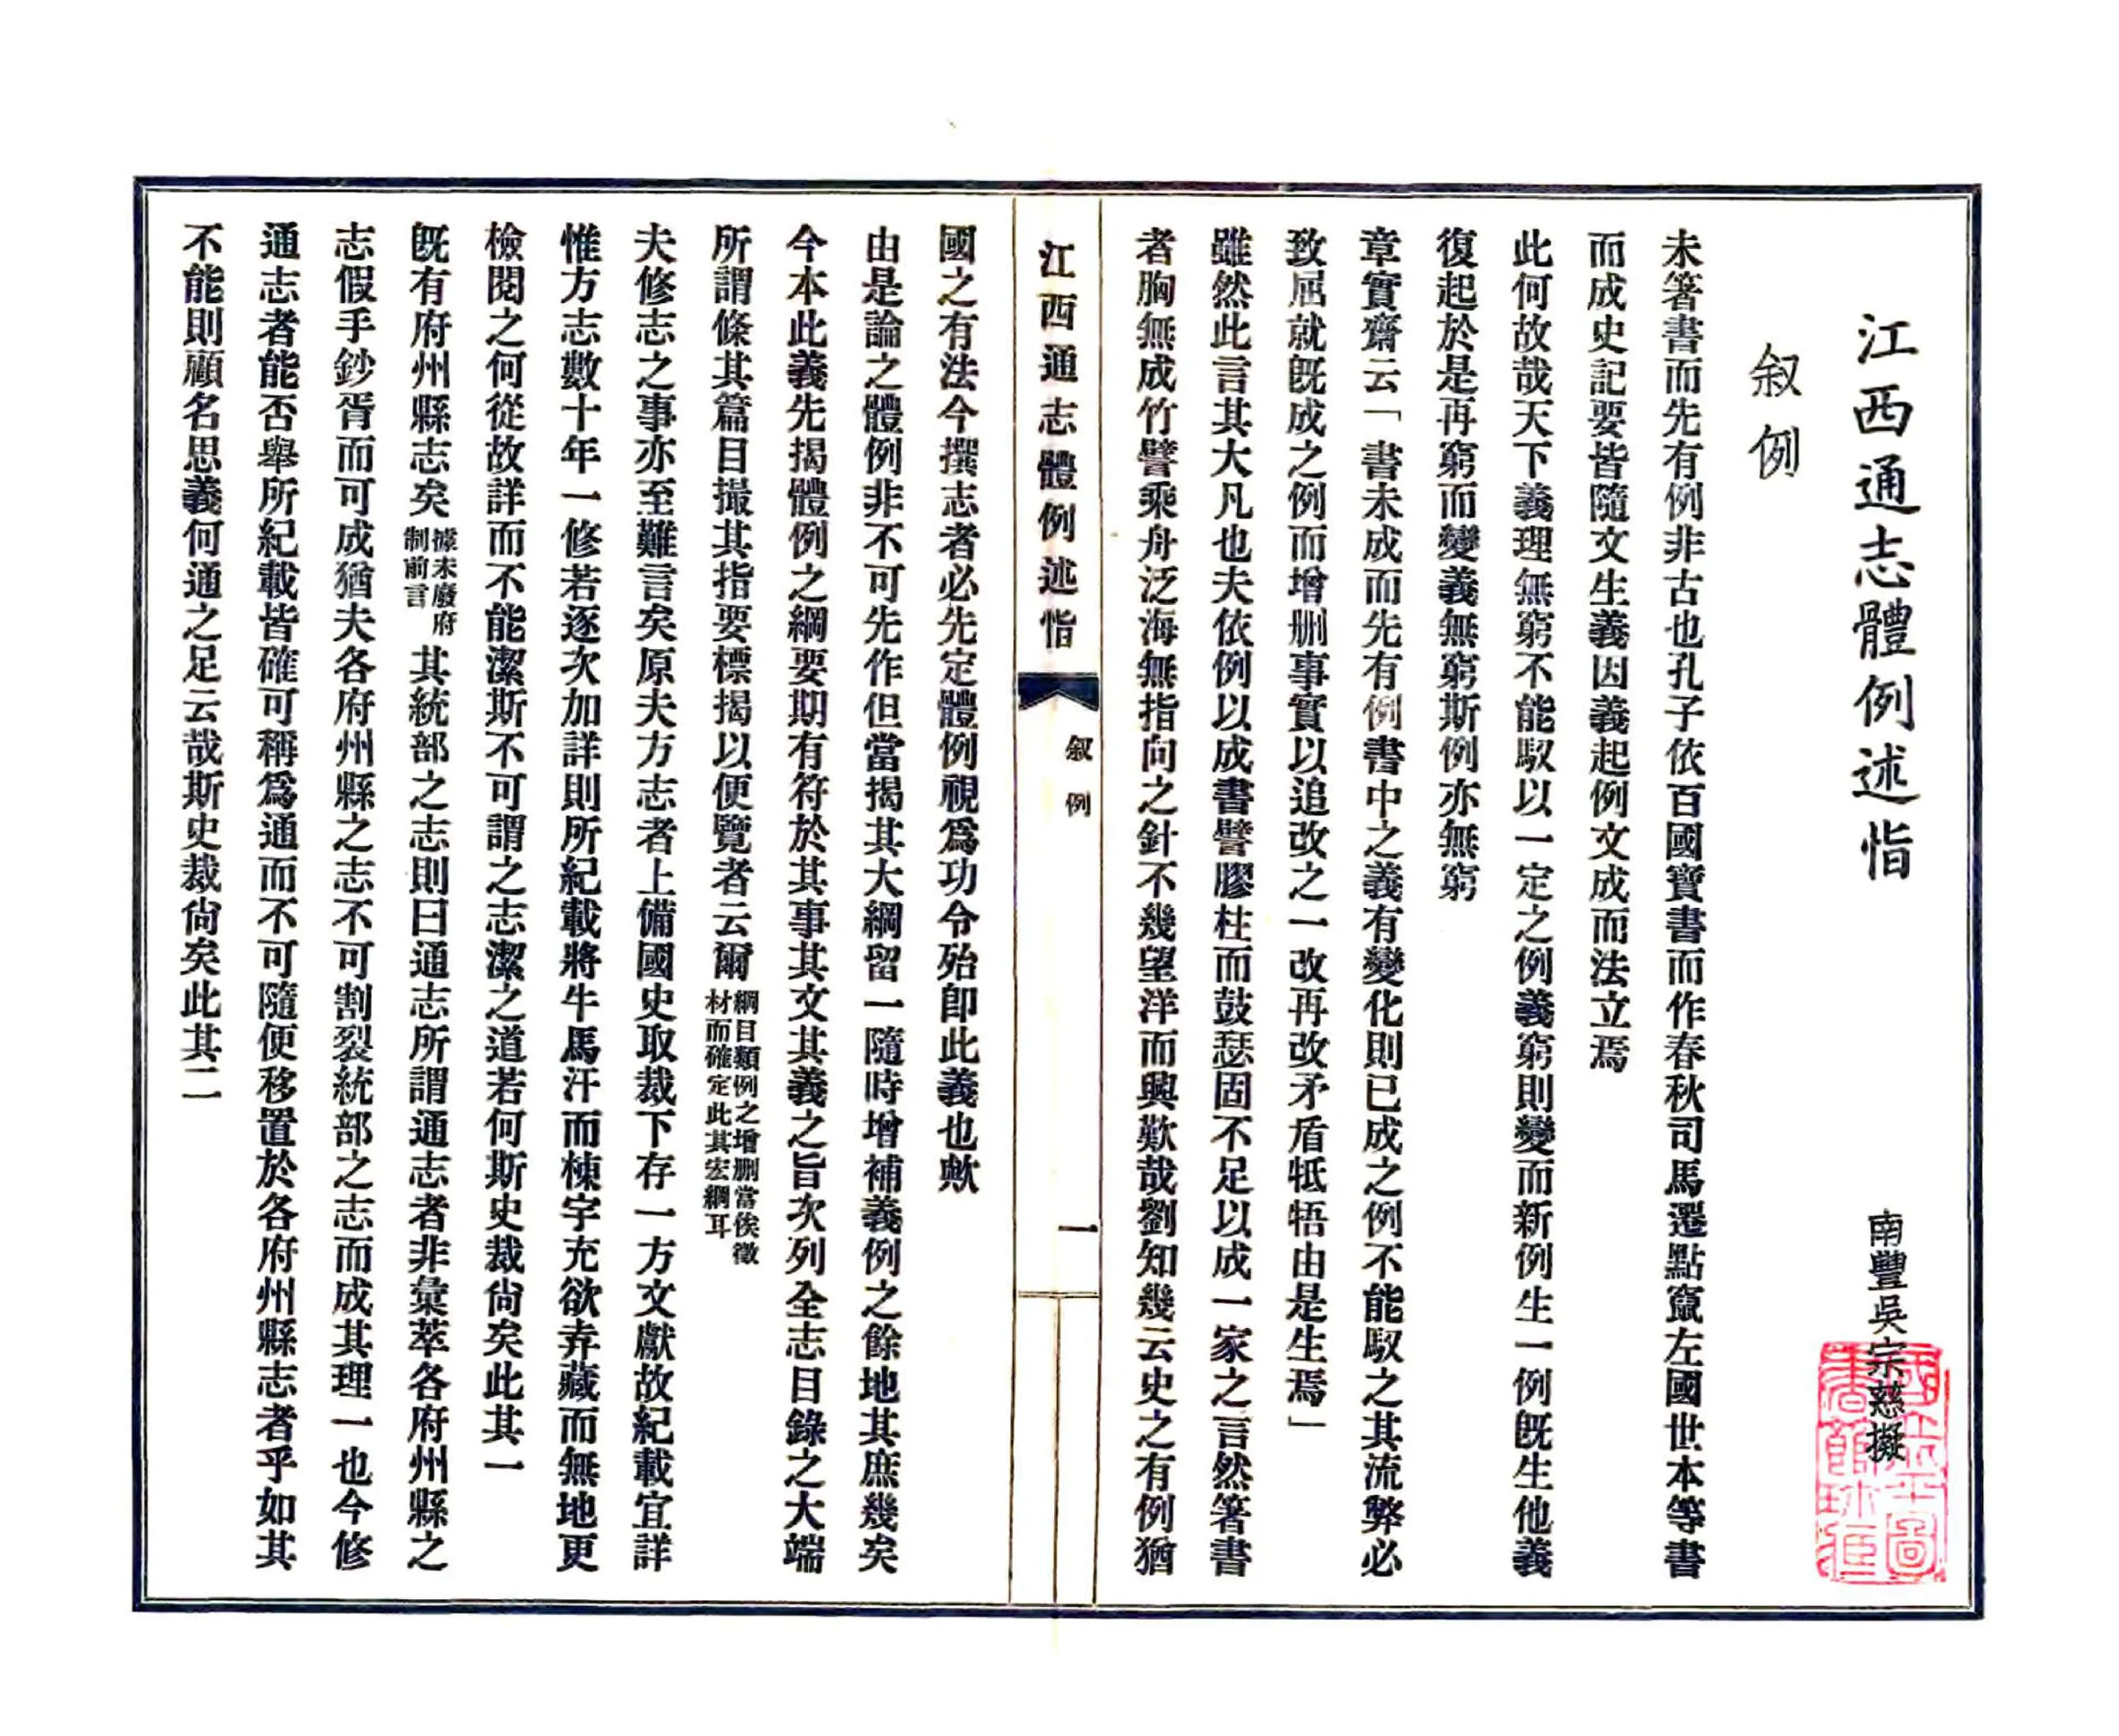 江西通志體例述恉
南豐吳宗慈擬
叙例
未箸書而先有例非古也孔子依百國寶書而作春秋司馬遷點竄左國世本等書
而成史記要皆隨文生義因義起例文成而法立焉
此何故哉天下義理無窮不能馭以一定之例義窮則變而新例生一例既生他義
復起於是再窮而變義無窮斯例亦無窮
章實齋云「書未成而先有例書中之義有變化則已成之例不能馭之其流弊必
致屈就既成之例而增删事實以追改之一改再改矛盾牴牾由是生焉」
雖然此言其大凡也夫依例以成書譬膠柱而鼓瑟固不足以成一家之言然箸書
者胸無成竹譬乘舟泛海無指向之針不幾望洋而興歎哉劉知幾云史之有例猶
江西通志體例述恉
叙例
一
國之有法今撰志者必先定體例視爲功令殆即此義也歟
由是論之體例非不可先作但當揭其大綱留一隨時增補義例之餘地其庶幾矣
今本此義先揭體例之綱要期有符於其事其文其義之旨次列全志目錄之大端
所謂條其篇目撮其指要標揭以便覽者云爾
綱目類例之增删當俟徵
材而確定此其宏綱耳
夫修志之事亦至難言矣原夫方志者上備國史取裁下存一方文獻故紀載宜詳
惟方志數十年一修若逐次加詳則所紀載將牛馬汗而棟宇充欲弆藏而無地更
檢閱之何從故詳而不能潔斯不可謂之志潔之道若何斯史裁尙矣此其一
既有府州縣志矣
據未廢府
制前言
其統部之志則曰通志所謂通志者非彙萃各府州縣之
志假手鈔胥而可成猶夫各府州縣之志不可割裂統部之志而成其理一也今修
通志者能否舉所紀載皆確可稱爲通而不可隨便移置於各府州縣志者乎如其
不能則顧名思義何通之足云哉斯史裁尙矣此其二